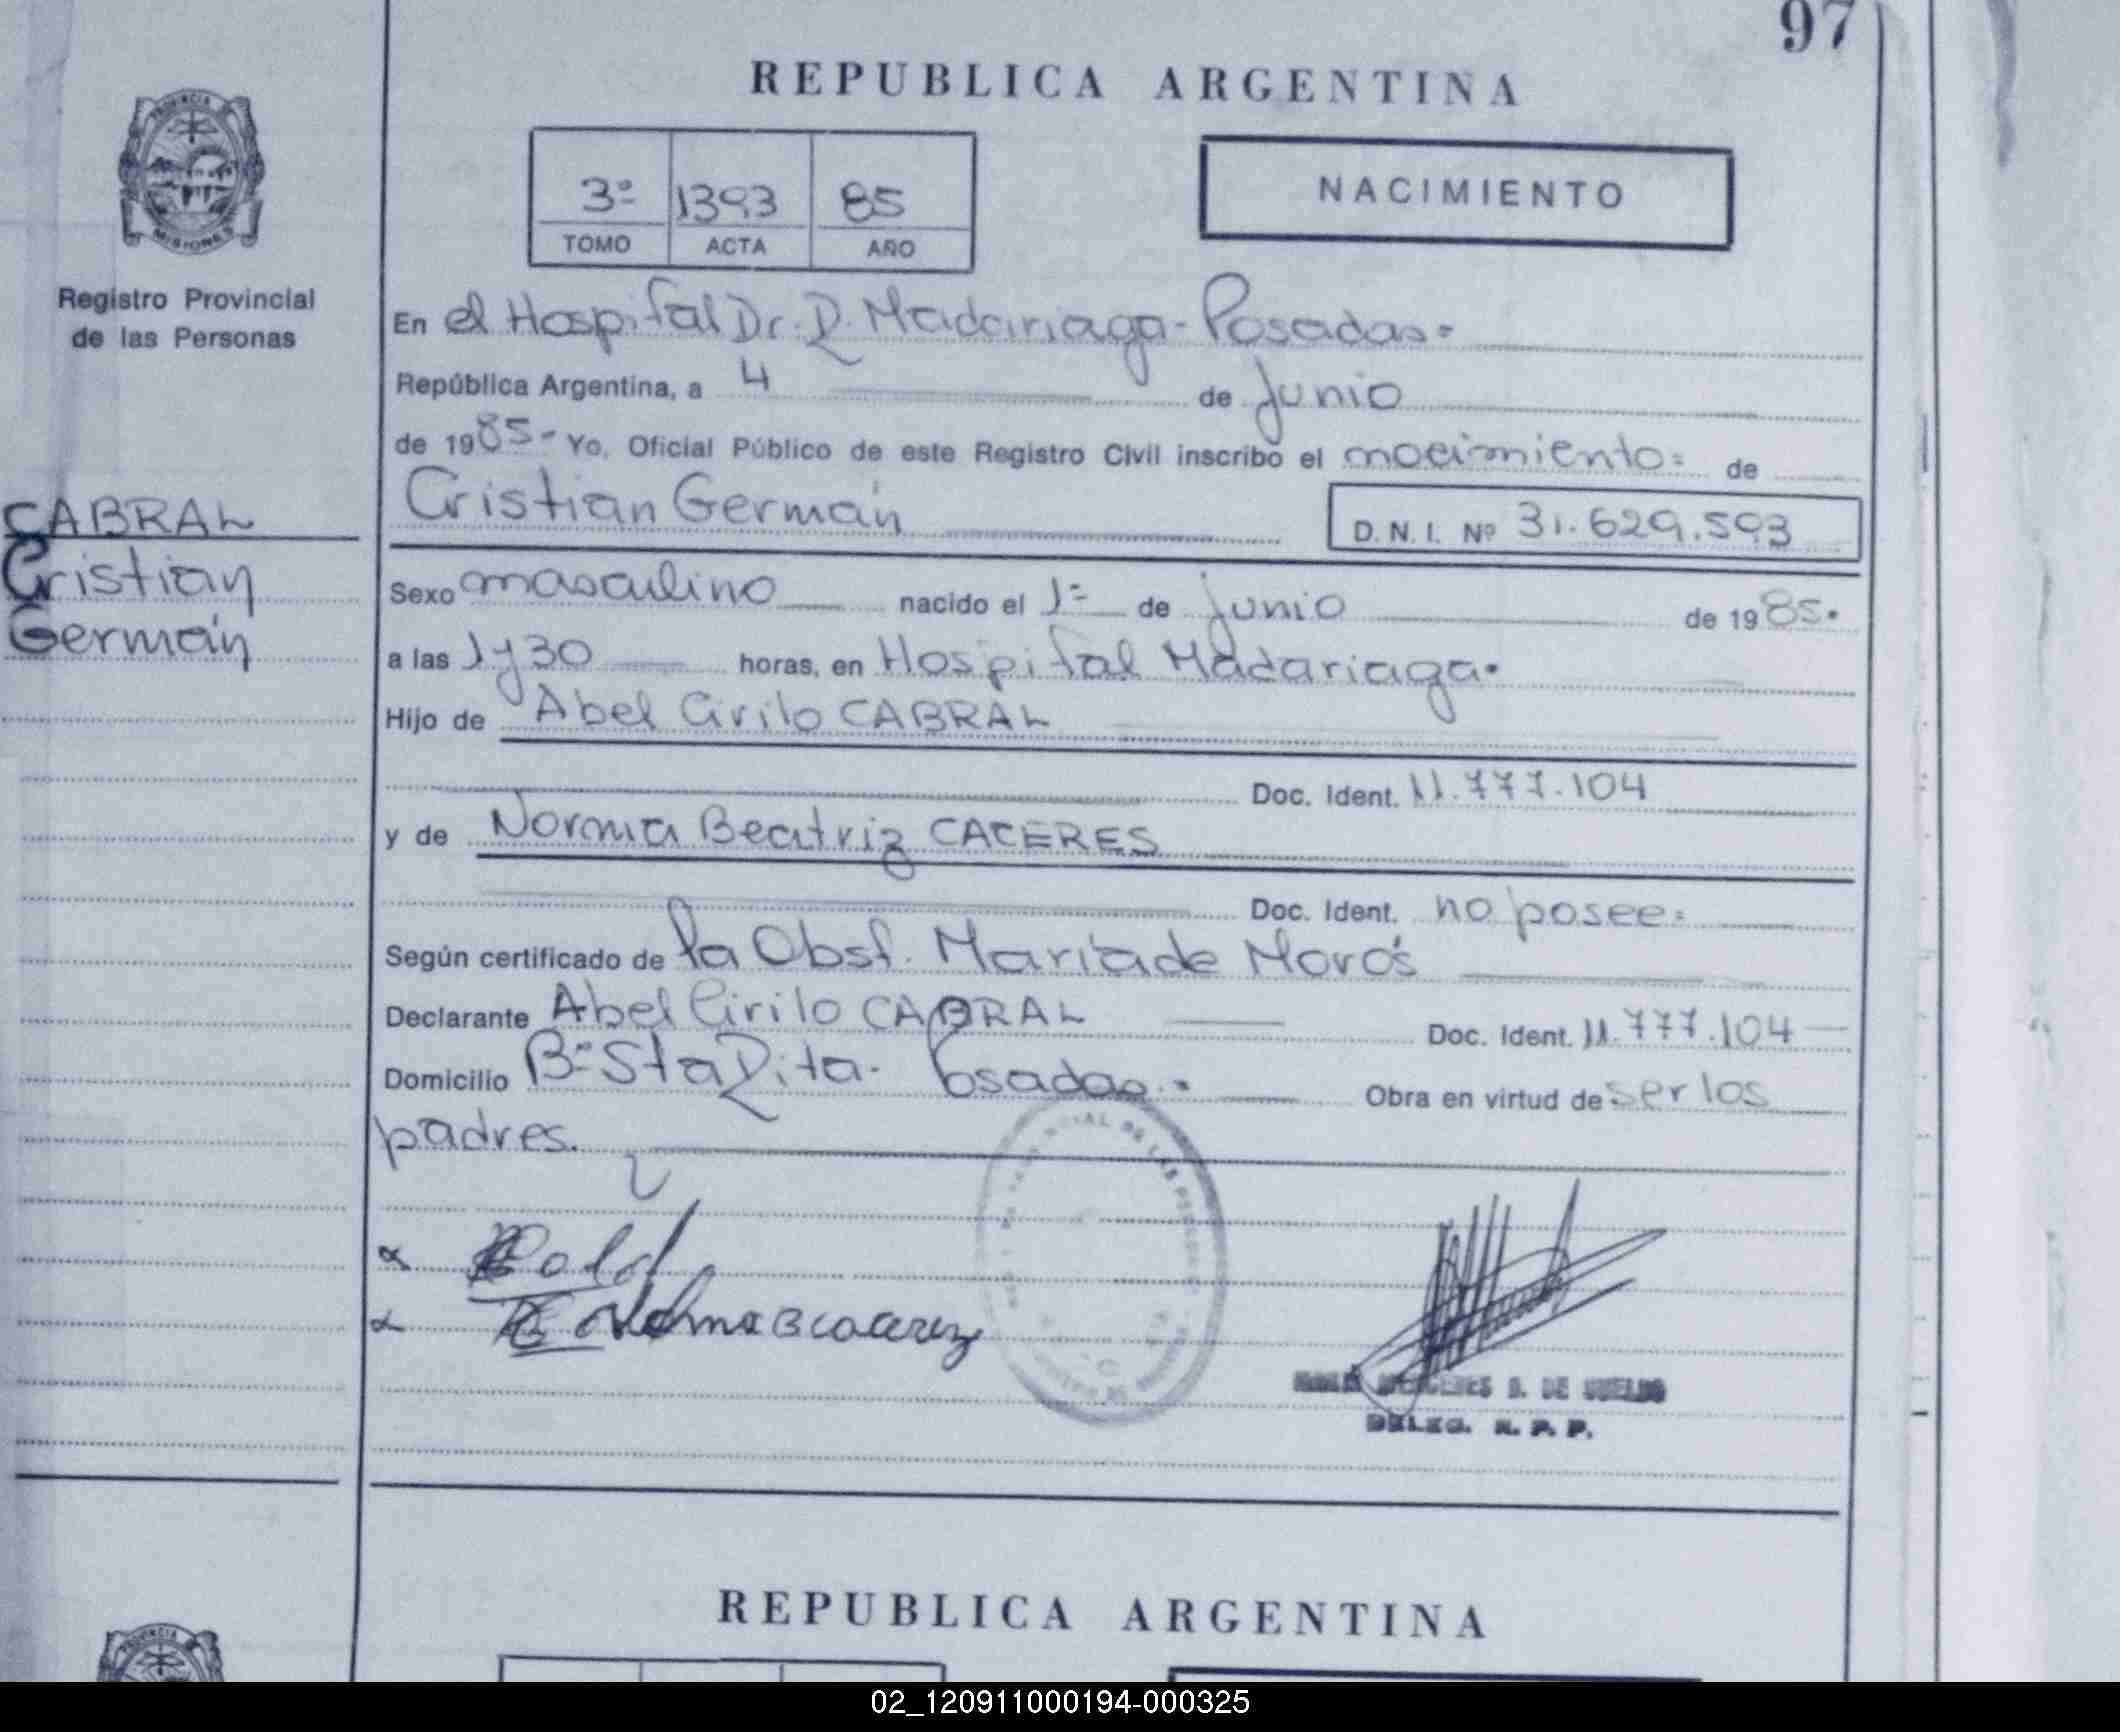 97
REPUBLICA ARGENTINA
PROVINCIA
MISIONES
3º 1393 85
TOMO ACTA AÑO
NACIMIENTO
Registro Provincial
de las Personas
En el Hospital Dr. R. Madariaga - Posadas =
República Argentina, a 4 de Junio
de 1985 - Yo, Oficial Público de este Registro Civil inscribo el nacimiento = de
Cristian Germán D. N. I. Nº 31.629.593
CABRAL
Cristian
Germán
Sexo masculino nacido el 1º de junio de 1985.
a las 1 y 30 horas, en Hospital Madariaga.
Hijo de Abel Cirilo CABRAL
Doc. Ident. 11.777.104
y de Norma Beatriz CACERES
Doc. Ident. no posee =
Según certificado de la Obst. María de Morós
Declarante Abel Cirilo CABRAL Doc. Ident. 11.777.104
Domicilio Bº Sta Rita. Posadas. Obra en virtud de ser los
padres.
DE SUELDO
DELEG. R. P. P.
REPUBLICA ARGENTINA
PROVINCIA
02_120911000194-000325